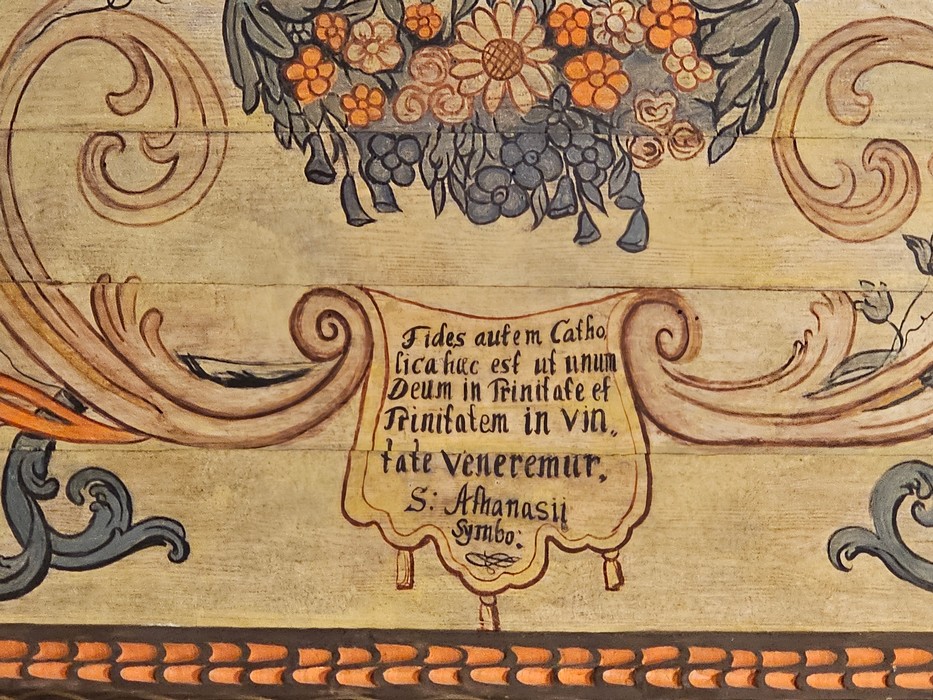 Fides autem Catho,
lica hæc est ut unum
Deum in Trinitate et
Trinitatem in Vin„
tate Veneremur,
S: Athanasii
Symbo: